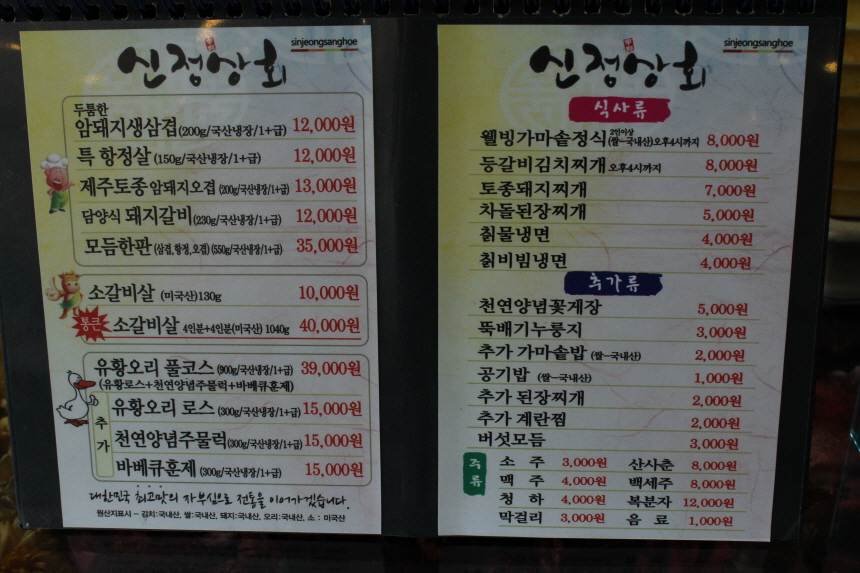 신정상회
sinjeongsanghoe
두툼한
암돼지생삼겹(200g/국산냉장/1+급) 12,000원
특 항정살 (150g/국산냉장/1+급) 12,000원
제주토종암돼지오겹 (200g/국산냉장/1+급) 13,000원
담양식 돼지갈비 (230g/국산냉장/1+급) 12,000원
모듬한판 (삼겹,항정,오겹) (550g/국산냉장/1+급) 35,000원
소갈비살 (미국산)130g 10,000원
통큰 소갈비살 4인분+4인분(미국산) 1040g 40,000원
유황오리 풀코스 (900g/국산냉장/1+급) 39,000원
(유황로스+천연양념주물럭+바베큐훈제)
추가
유황오리 로스 (300g/국산냉장/1+급) 15,000원
천연양념주물럭(300g/국산냉장/1+급) 15,000원
바베큐훈제 (300g/국산냉장/1+급) 15,000원
대한민국 최고맛의 자부심으로 전통을 이어가겠습니다.
원산지표시 – 김치:국내산, 쌀:국내산, 돼지:국내산, 오리:국내산, 소 : 미국산
신정상회
sinjeongsanghoe
식사류
웰빙가마솥정식 2인이상 (쌀–국내산)오후4시까지 8,000원
등갈비김치찌개 오후4시까지 8,000원
토종돼지찌개 7,000원
차돌된장찌개 5,000원
칡물냉면 4,000원
칡비빔냉면 4,000원
추가류
천연양념꽃게장 5,000원
뚝배기누룽지 3,000원
추가 가마솥밥 (쌀–국내산) 2,000원
공기밥 (쌀–국내산) 1,000원
추가 된장찌개 2,000원
추가 계란찜 2,000원
버섯모듬 3,000원
주류
소 주 3,000원 산사춘 8,000원
맥 주 4,000원 백세주 8,000원
청 하 4,000원 복분자 12,000원
막걸리 3,000원 음 료 1,000원